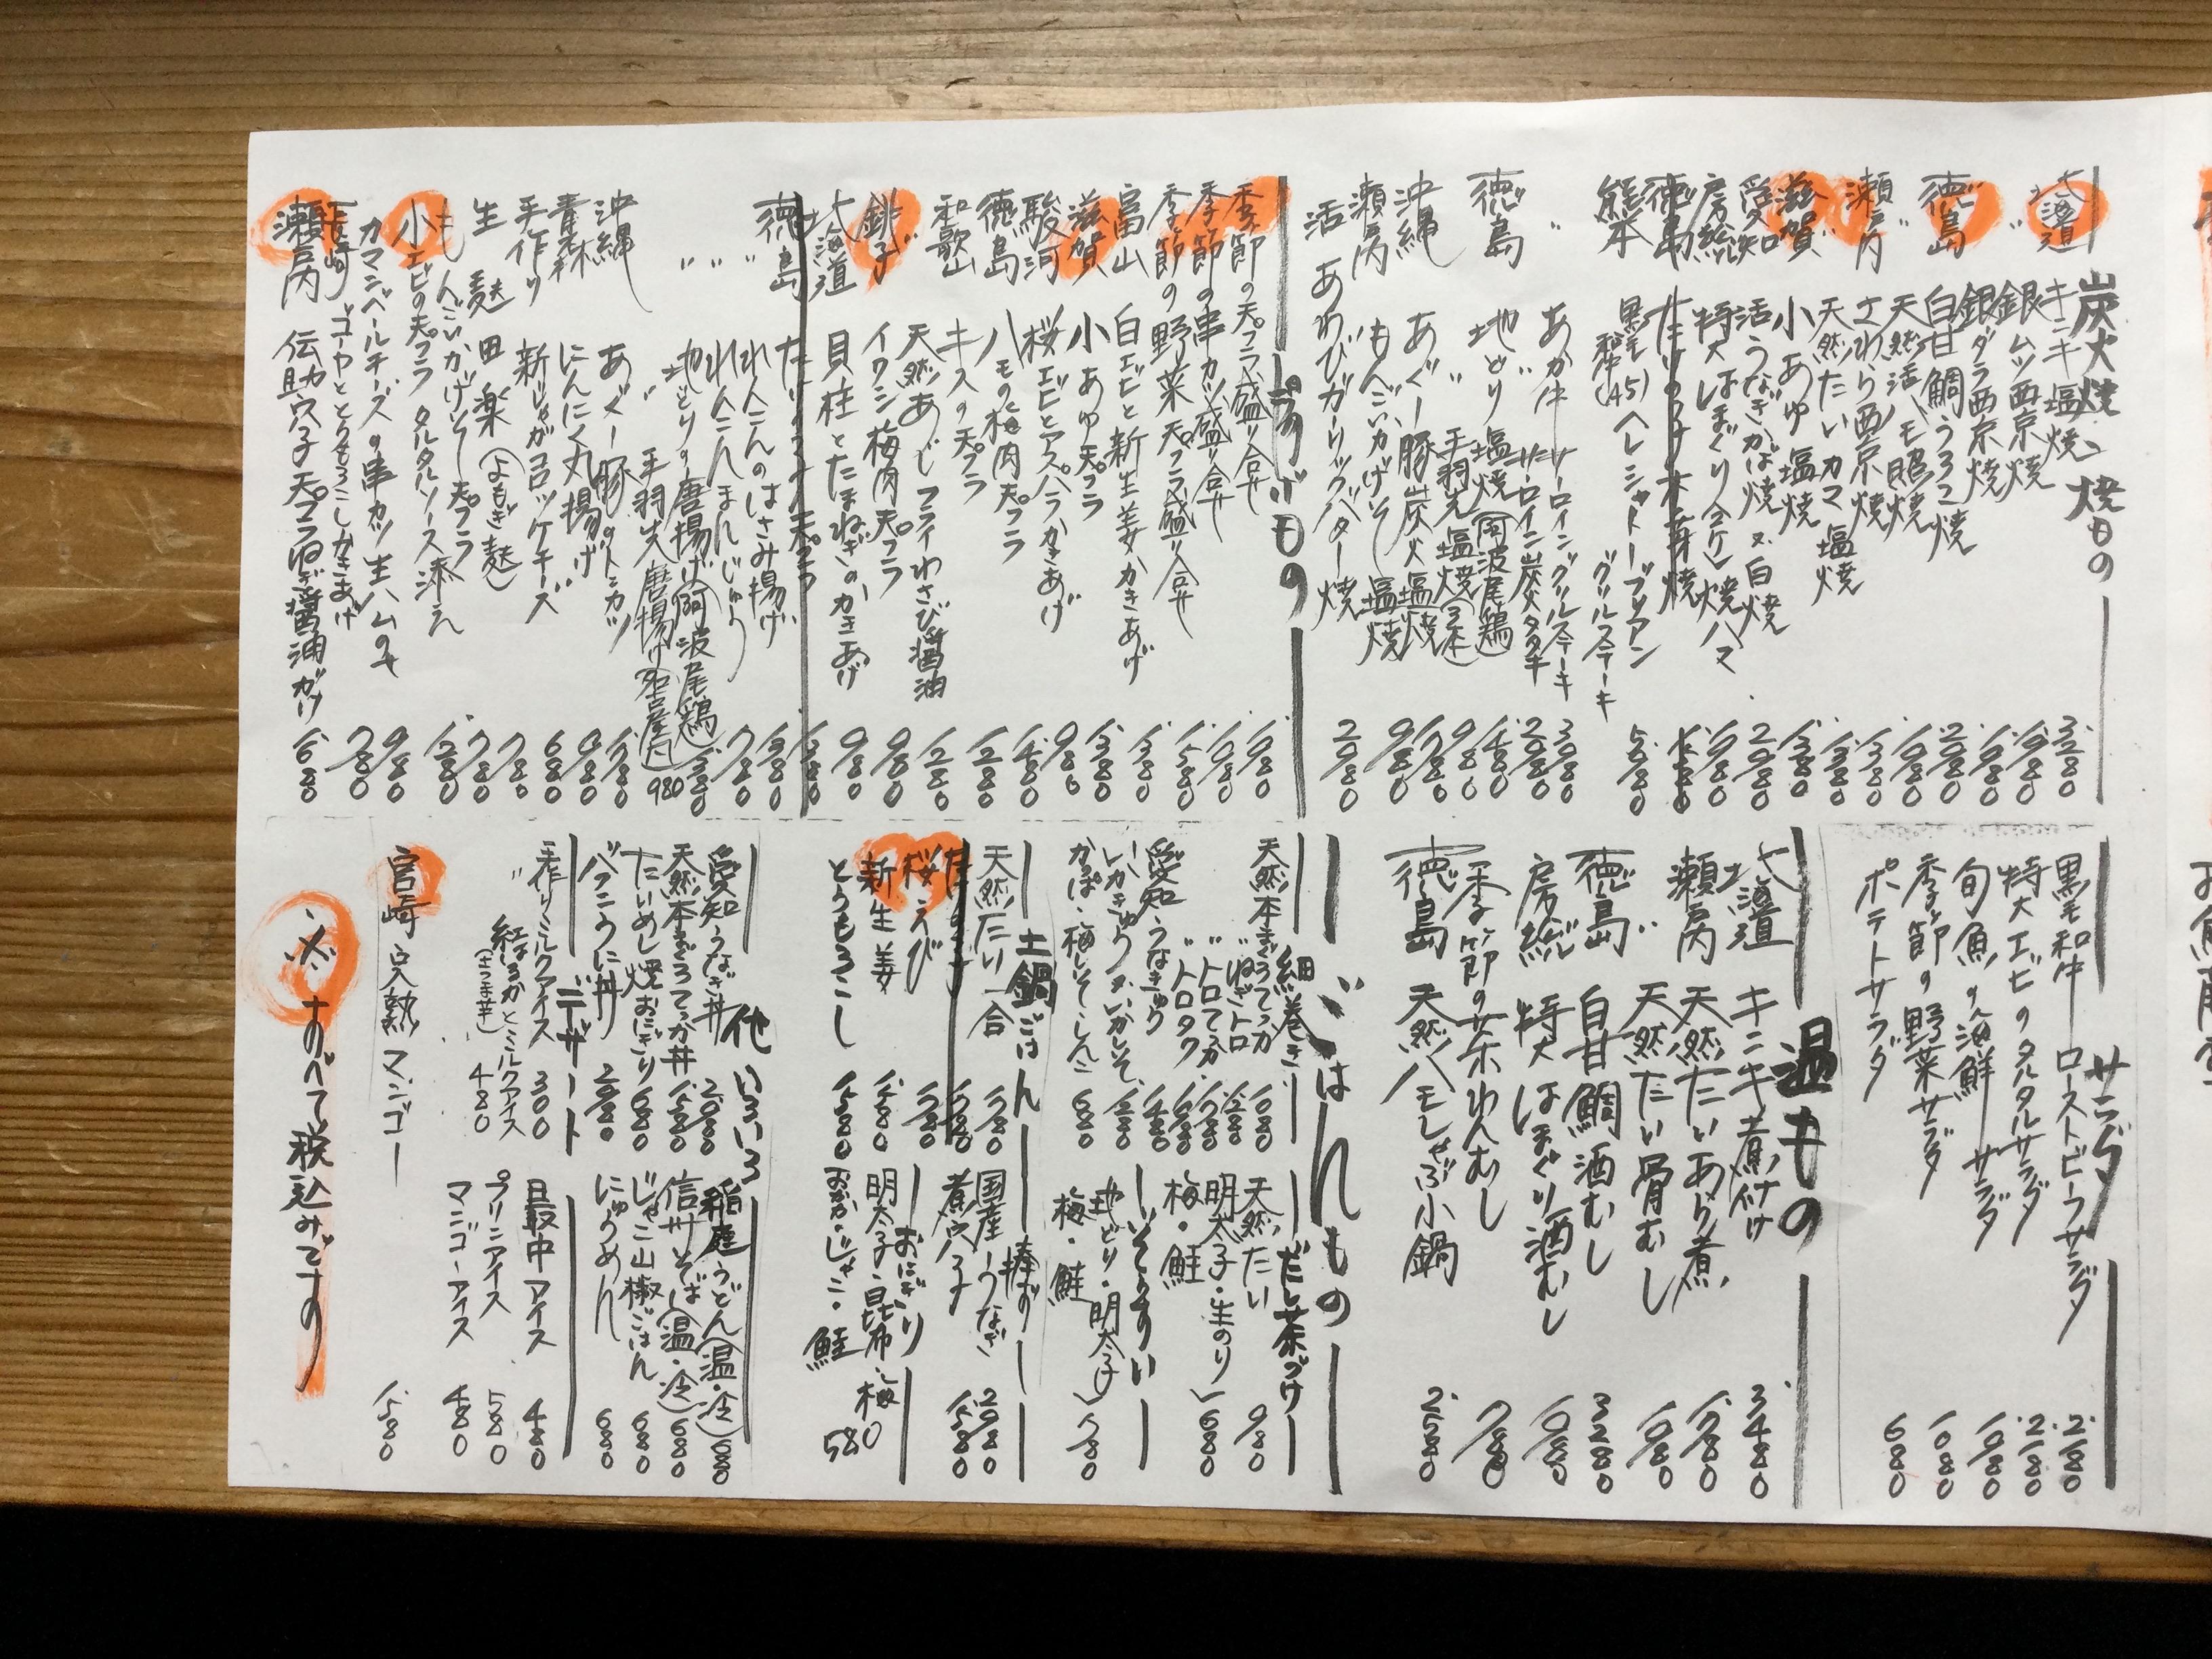 炭火焼、焼もの
北海道 キンキ塩焼 3.280
〃 銀ムツ西京焼 1.980
銀ダラ西京焼 1.980
徳島 白甘鯛うろこ焼 2.080
〃 天然活ハモ照焼 1.980
瀬戸内 さわら西京焼 1.380
〃 天然たいカマ塩焼 1.380
滋賀 小あゆ塩焼 1.380
愛知 活うなぎかば焼 又、白焼 2.980
房総 特大はまぐり(2ケ)焼ハマ 1.980
徳島 たけのこ木の芽焼
熊本 黒毛和牛(A5)ヘレシャトーブリアン
グリルステーキ 5.980
〃 あか牛 サーロイングリルステーキ 3.980
サーロイン炭火タタキ 2.980
徳島 地どり塩焼(阿波尾鶏) 1.480
〃 〃 手羽先塩焼(3本) 980
沖縄 あぐー豚炭火塩焼 1.780
瀬戸内 もんごいかげそ塩焼 980
活 あわびガーリックバター焼 2.980
揚げもの
季節の天プラ盛り合せ 1.980
季節の串カツ盛り合せ 1.980
季節の野菜天プラ盛り合せ 1.580
富山 白エビと新生姜かきあげ 1.380
滋賀 小あゆ天プラ 1.380
駿河 桜エビとアスパラかきあげ 980
徳島 ハモの梅肉天プラ 1.480
和歌山 キスの天プラ 1.280
〃 天然あじフライわさび醤油 1.280
銚子 イワシ梅肉天プラ 980
北海道 貝柱とたまねぎのかきあげ 980
徳島 たけのこ天プラ 1.380
〃 れんこんのはさみ揚げ 1.380
〃 れんこんまんじゅう 780
〃 地どりの唐揚げ(阿波尾鶏) 1.380
〃 手羽先唐揚げ(名古屋風) 980
沖縄 あぐー豚のトンカツ 1.780
青森 にんにく丸揚げ 980
手作り 新じゃがコロッケチーズ 680
生麩田楽(よもぎ麩) 780
もんごいかげそ天プラ 780
小エビの天プラ タルタルソース添え 1.280
カマンベールチーズの串カツ 生ハムのせ 980
長崎 ゴーヤととうもろこしかきあげ 780
瀬戸内 伝助穴子天プラねぎ醤油がけ 1.680
サラダ
黒毛和牛ローストビーフサラダ 2.180
特大エビのタルタルサラダ 2.180
旬魚の海鮮サラダ 1.980
季節の野菜サラダ 1.080
ポテトサラダ 680
温もの
北海道 キンキ煮付け 3.480
瀬戸内 天然たいあら煮 1.980
〃 天然たい骨むし 1.080
徳島 白甘鯛酒むし 3.280
房総 特大はまぐり酒むし 1.980
季節の茶わんむし 780
徳島 天然ハモしゃぶ小鍋 2.580
ごはんもの
細巻き
天然本まぐろてっか 1.080
〃 ねぎトロ 1.280
〃 トロてっか 1.780
〃 トロタク 1.680
愛知 うなきゅう 1.480
いかきゅう又、いかしそ 1.280
かっぱ・梅しそ・しんこ 680
だし茶づけ
天然たい 980
明太子・生のり
梅・鮭 680
ぞうすい
地どり・明太子
梅・鮭 780
土鍋ごはん
天然たい一合 1.780
桜えび 1.780
新生姜 1.580
とうもろこし 1.580
棒ずし
国産うなぎ 2.980
煮穴子 1.580
おにぎり
明太子・昆布・梅
おかか・じゃこ・鮭 580
他いろいろ
愛知うなぎ丼 2.980
天然本まぐろてっか丼 1.580
たいめし焼おにぎり 680
バフンうに丼 2.980
稲庭うどん(温・冷) 680
信州そば(温・冷) 680
じゃこ山椒ごはん 680
にゅうめん 680
デザート
手作りミルクアイス 300
〃 紅はるかとミルクアイス
(さつま芋) 480
最中アイス 480
プリンアイス 580
マンゴーアイス 480
宮崎 完熟マンゴー 1.580
※ すべて税込みです